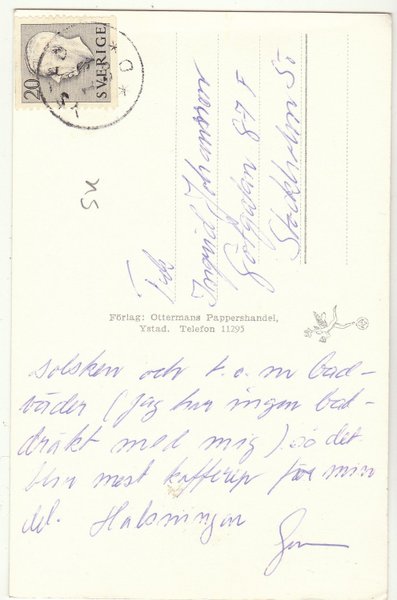 20
SVERIGE
SK
Frk
Ingrid Johansson
Götgatan 87 F
Stockholm Sö
Förlag: Ottermans Pappershandel,
Ystad. Telefon 11295
solsken och t.o.m bad-
väder (jag har ingen bad-
dräkt med mig). så det
blir mest kafferep för min
del. Hälsningar